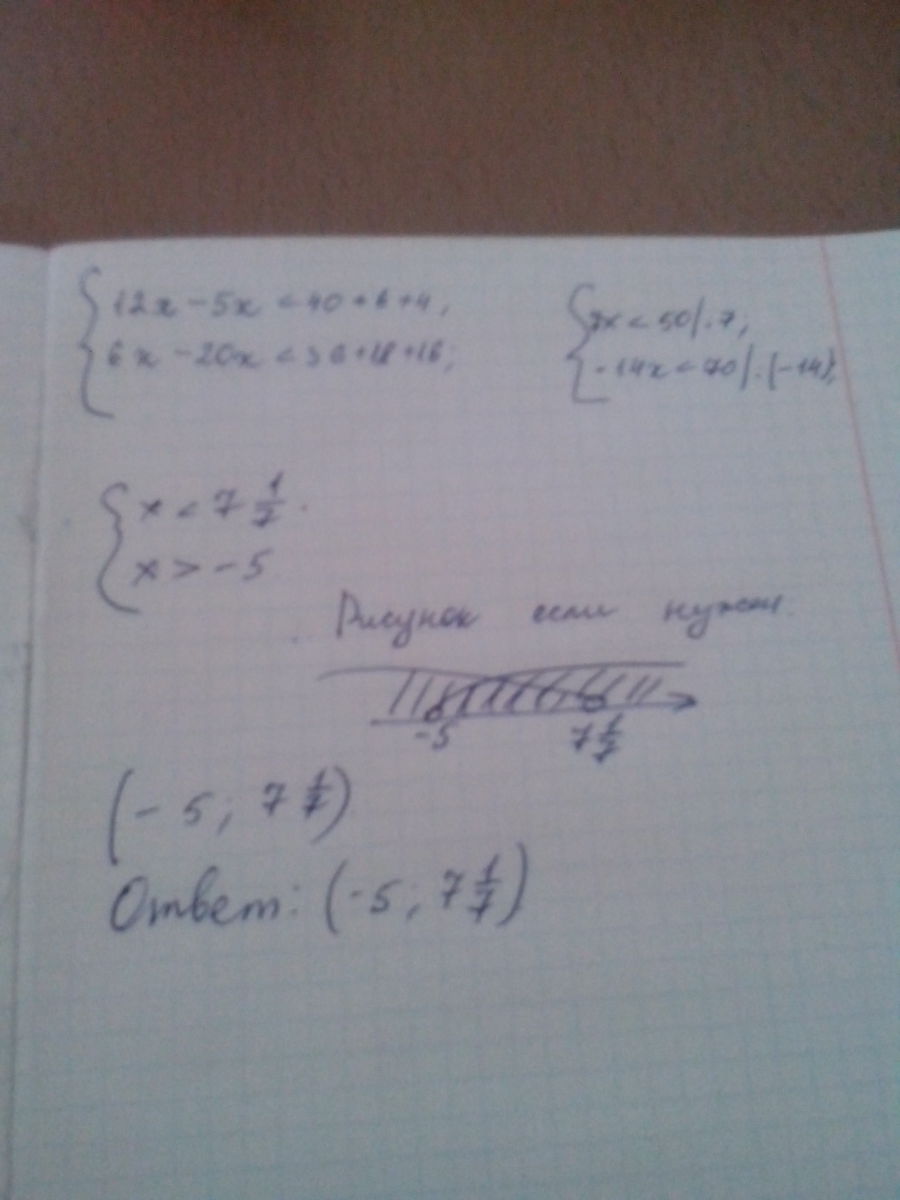 12x - 5x < 40 + 6 + 4;
6x - 20x < 36 + 18 + 16;
7x < 50 | : 7;
-14x < 70 | : (-14);
x < 7 1/7
x > -5
Рисунок если нужен.
-5 7 1/7
(-5; 7 1/7)
Ответ: (-5; 7 1/7)